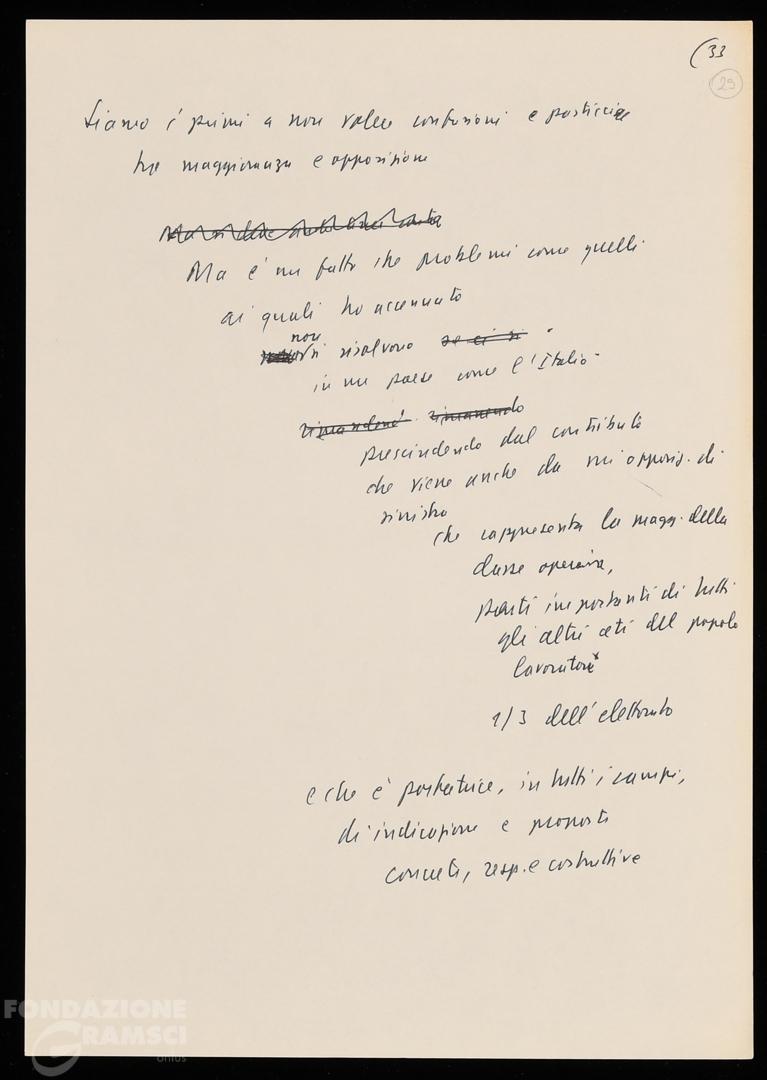 (33
29
Siamo i primi a non volere confusioni e pasticci
tra maggioranza e opposizione
Ma è un fatto che problemi come quelli
ai quali ho accennato
non
si risolvono se ci si
in un paese come l'Italia
rimanendo
prescindendo dal contributo
che viene anche da un'opposiz. di
sinistra
che rappresenta la magg. della
classe operaia,
parti importanti di tutti
gli altri ceti del popolo
lavoratore
1/3 dell'elettorato
e che è portatrice, in tutti i campi,
di indicazioni e proposte
concrete, resp. e costruttive
FONDAZIONE
GRAMSCI
onlus